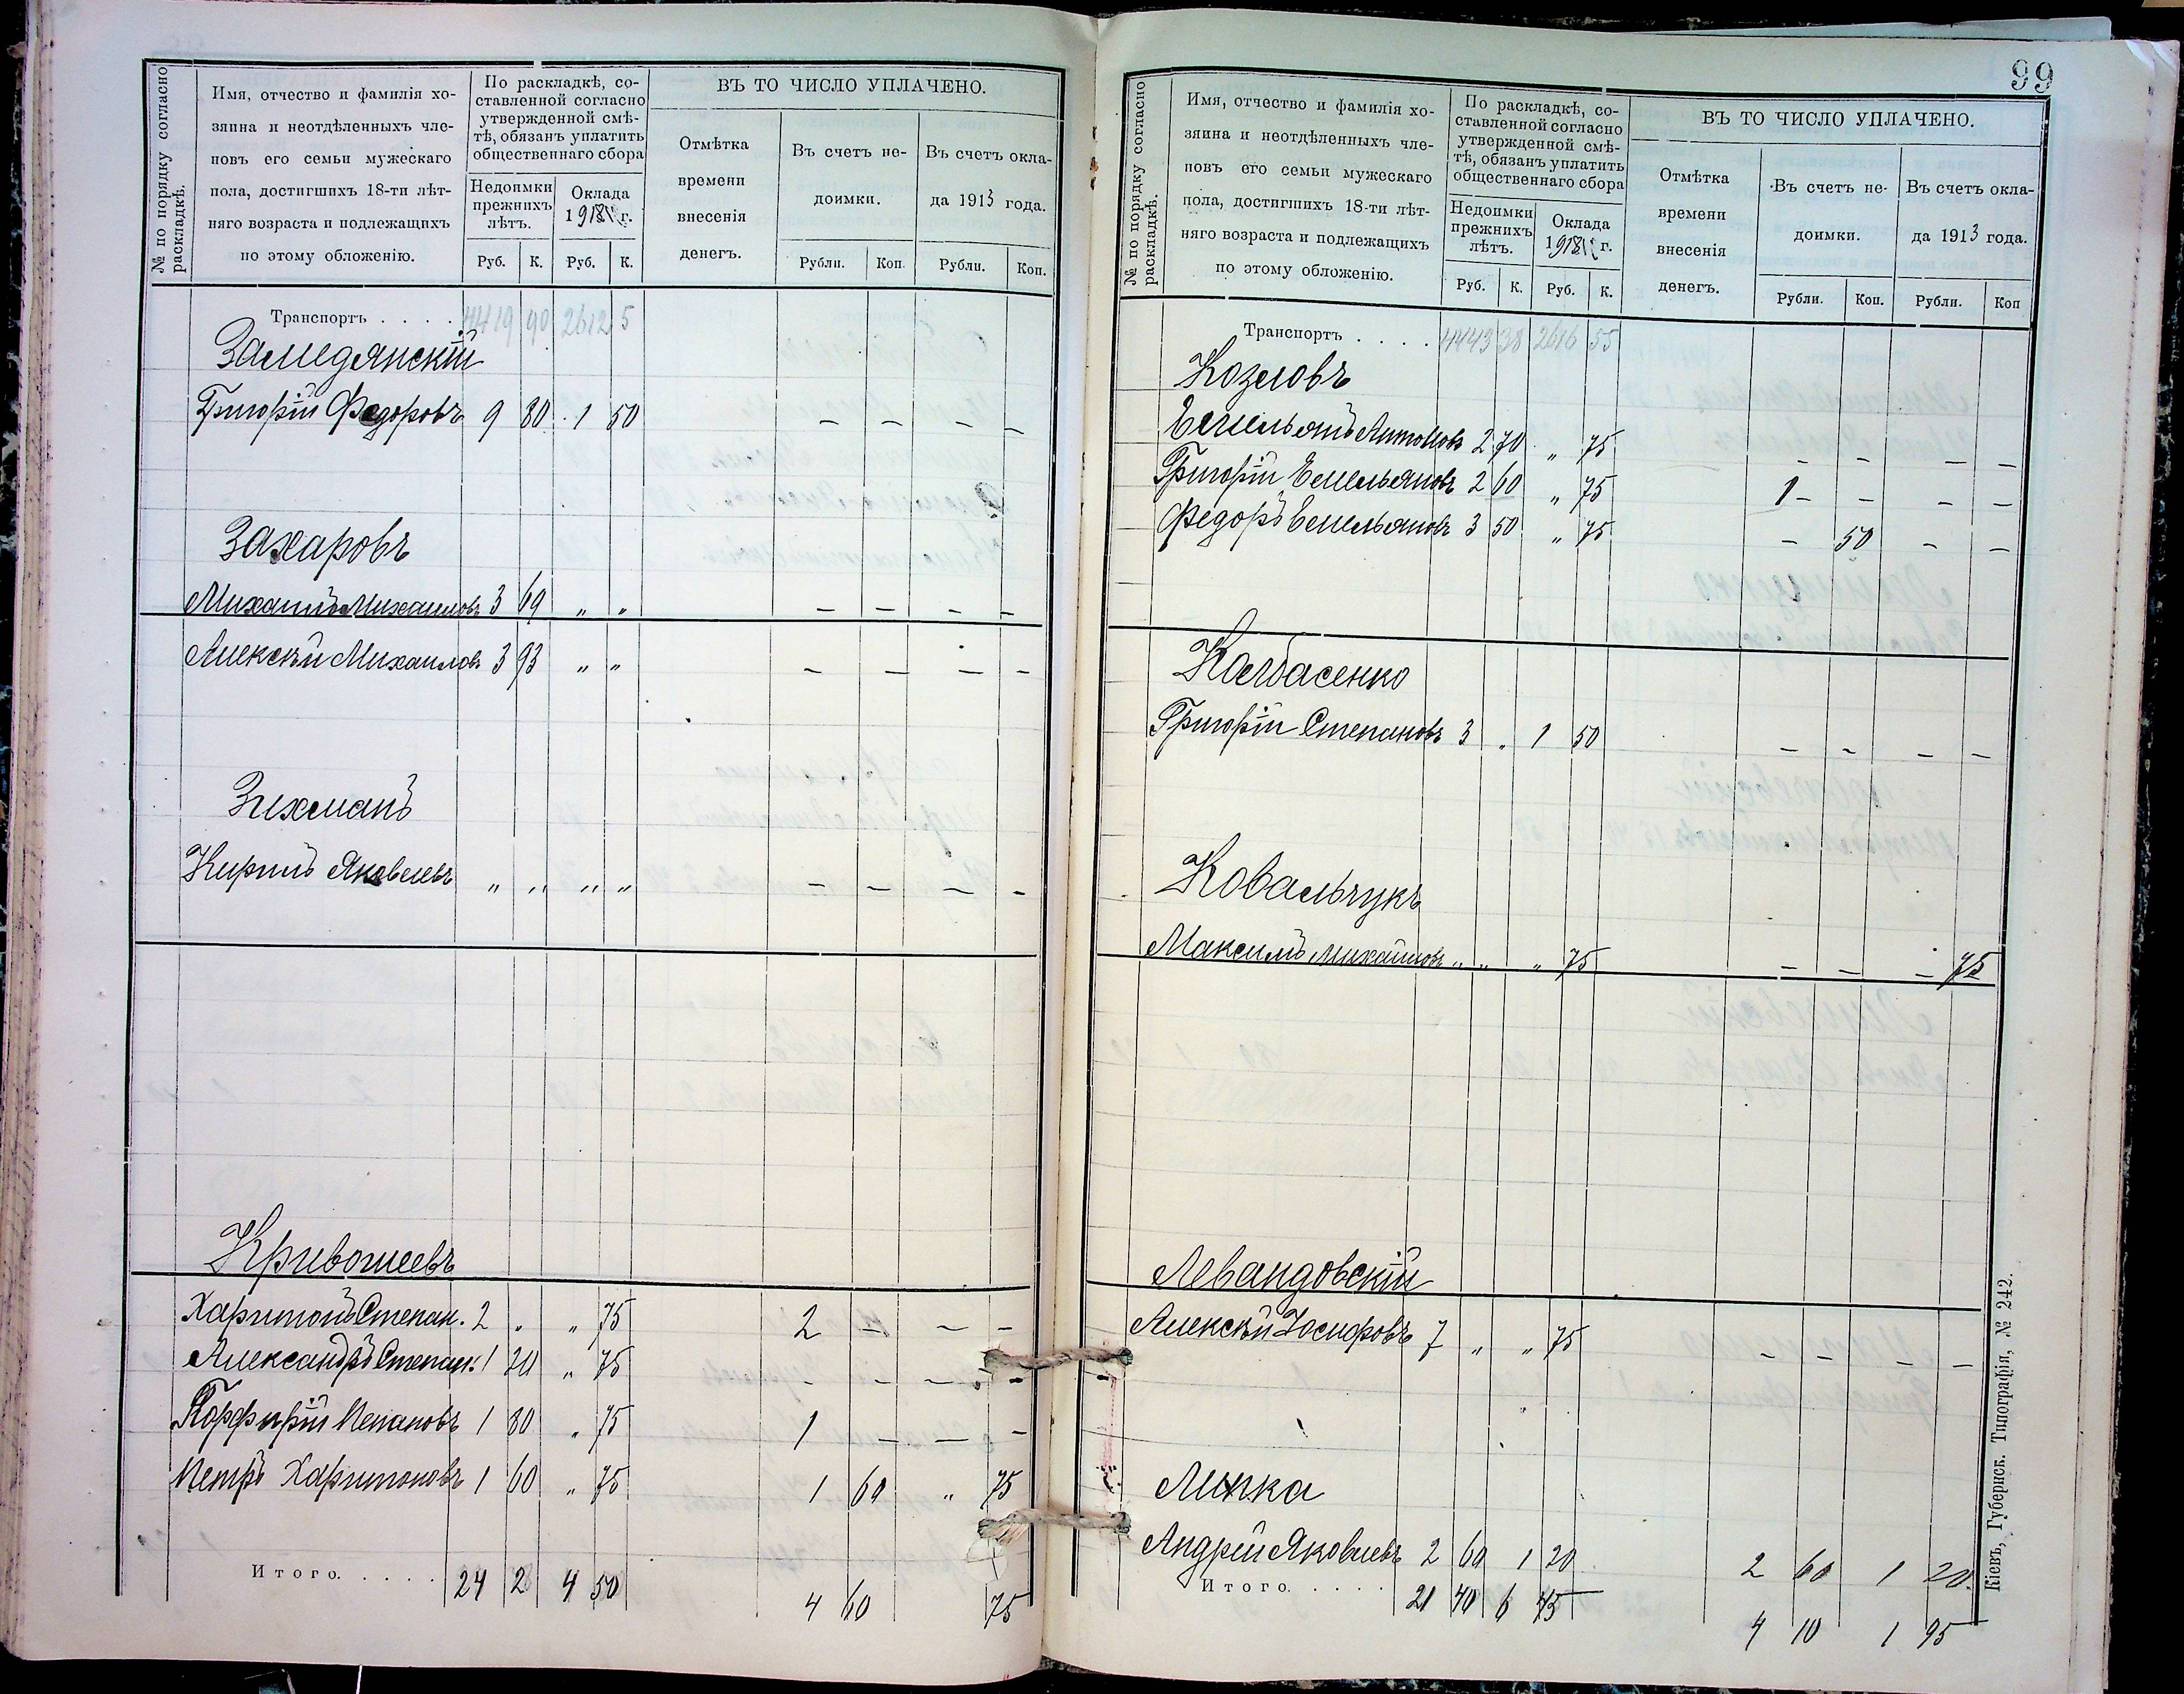 № по порядку согласно раскладкѣ.
Имя, отчество и фамилія хо-
зяина и неотдѣленныхъ чле-
новъ его семьи мужескаго
пола, достигшихъ 18-ти лѣт-
няго возраста и подлежащихъ
по этому обложенію.
По раскладкѣ, со-
ставленной согласно
утвержденной смѣ-
тѣ, обязанъ уплатить
общественнаго сбора
Недоимки прежнихъ лѣтъ.
Оклада 1913 г.
Руб. К. Руб. К.
ВЪ ТО ЧИСЛО УПЛАЧЕНО.
Отмѣтка
времени
внесенія
денегъ.
Въ счетъ не-
доимки.
Въ счетъ окла-
да 1913 года.
Рубли. Коп. Рубли. Коп.
Транспортъ . . . . 4419 90 2612 5
Замедянскій
Григорій Федоровъ 9 80 1 50 – – – –
Захаровъ
Михаилъ Михаиловъ 3 69 „ „ – – – –
Алексѣй Михаиловъ 3 93 „ „ – – – –
Зихманъ
Кирилъ Яковлевъ „ „ „ „ – – – –
Кривошеевъ
Харитонъ Степан. 2 „ „ 75 2 – – –
Александръ Степан. 1 20 „ 75 – – – –
Порфирій Степановъ 1 80 „ 75 1 – – –
Петръ Харитоновъ 1 60 „ 75 1 60 „ 75
Итого. . . . . 24 2 4 50 4 60 75
99
№ по порядку согласно раскладкѣ.
Имя, отчество и фамилія хо-
зяина и неотдѣленныхъ чле-
новъ его семьи мужескаго
пола, достигшихъ 18-ти лѣт-
няго возраста и подлежащихъ
по этому обложенію.
По раскладкѣ, со-
ставленной согласно
утвержденной смѣ-
тѣ, обязанъ уплатить
общественнаго сбора
Недоимки прежнихъ лѣтъ.
Оклада 1913 г.
Руб. К. Руб. К.
ВЪ ТО ЧИСЛО УПЛАЧЕНО.
Отмѣтка
времени
внесенія
денегъ.
Въ счетъ не-
доимки.
Въ счетъ окла-
да 1913 года.
Рубли. Коп. Рубли. Коп
Транспортъ . . . . 4443 38 2616 55
Козловъ
Емельянъ Антоновъ 2 70 „ 75 – – – –
Григорій Емельяновъ 2 60 „ 75 1 – – –
Федоръ Емельяновъ 3 50 „ 75 – 50 – –
Калбасенко
Григорій Степановъ 3 „ 1 50 – – – –
Ковальчукъ
Максимъ Михайловъ „ „ „ 75 – – – 75
Левандовскій
Алексѣй Іосифовъ 7 „ „ 75 – – – –
Липка
Андрей Яковлевъ 2 60 1 20 2 60 1 20
Итого. . . . . 21 40 6 45 4 10 1 95
Кіевъ, Губернск. Типографія, № 242.